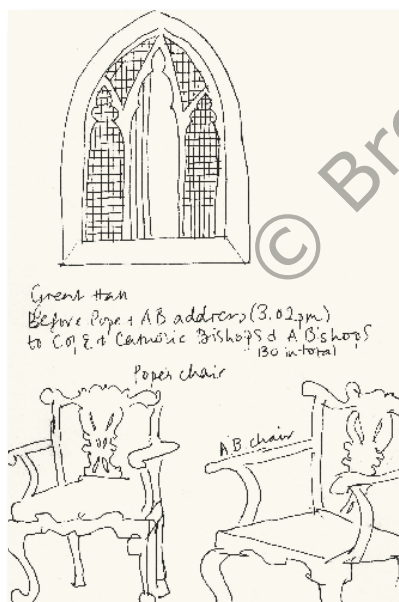 © Bre
Great Hall
Before Pope + AB address (3.02pm)
to C of E + Catholic Bishops & A Bishops
130 in total
Popes chair
AB chair